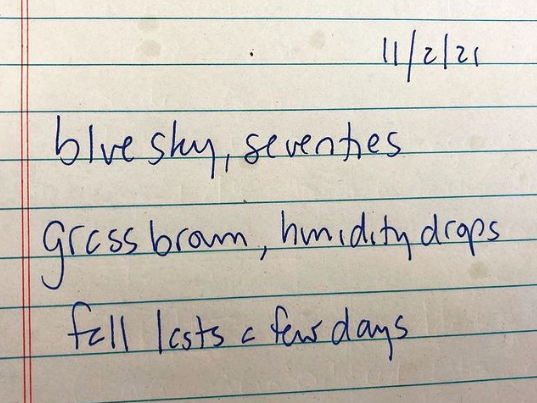 11/2/21
blue sky, seventies
grass brown, humidity drops
fall lasts a few days